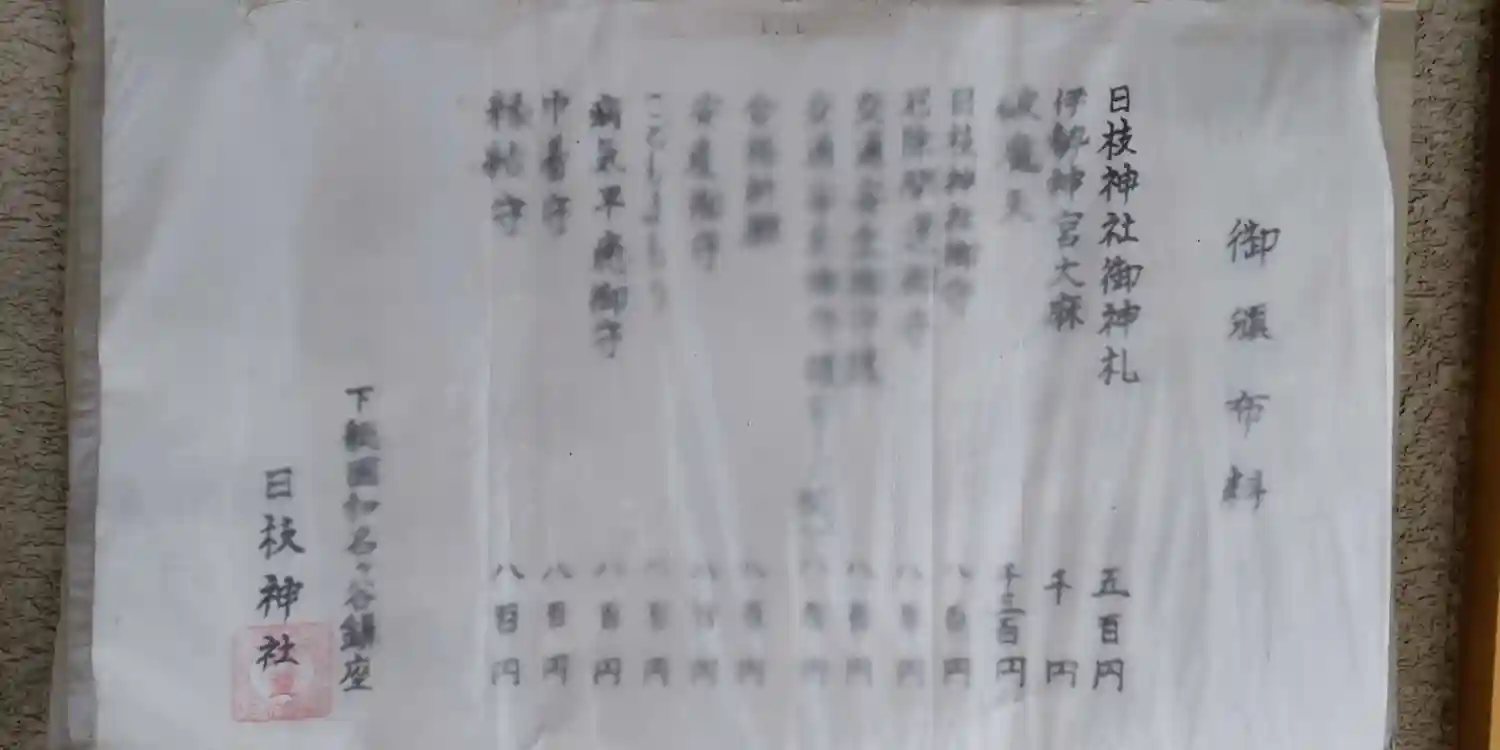 御頒布料
日枝神社御神札 五百円
伊勢神宮大麻 千円
破魔矢 千三百円
日枝神社御守 八百円
厄除開運御守 八百円
交通安全 八百円
交通安全 八百円
合格祈願 八百円
安産御守 八百円
ことしまもり 八百円
病気平癒御守 八百円
巾着守 八百円
縁結守 八百円
下総国和名ヶ谷鎮座
日枝神社